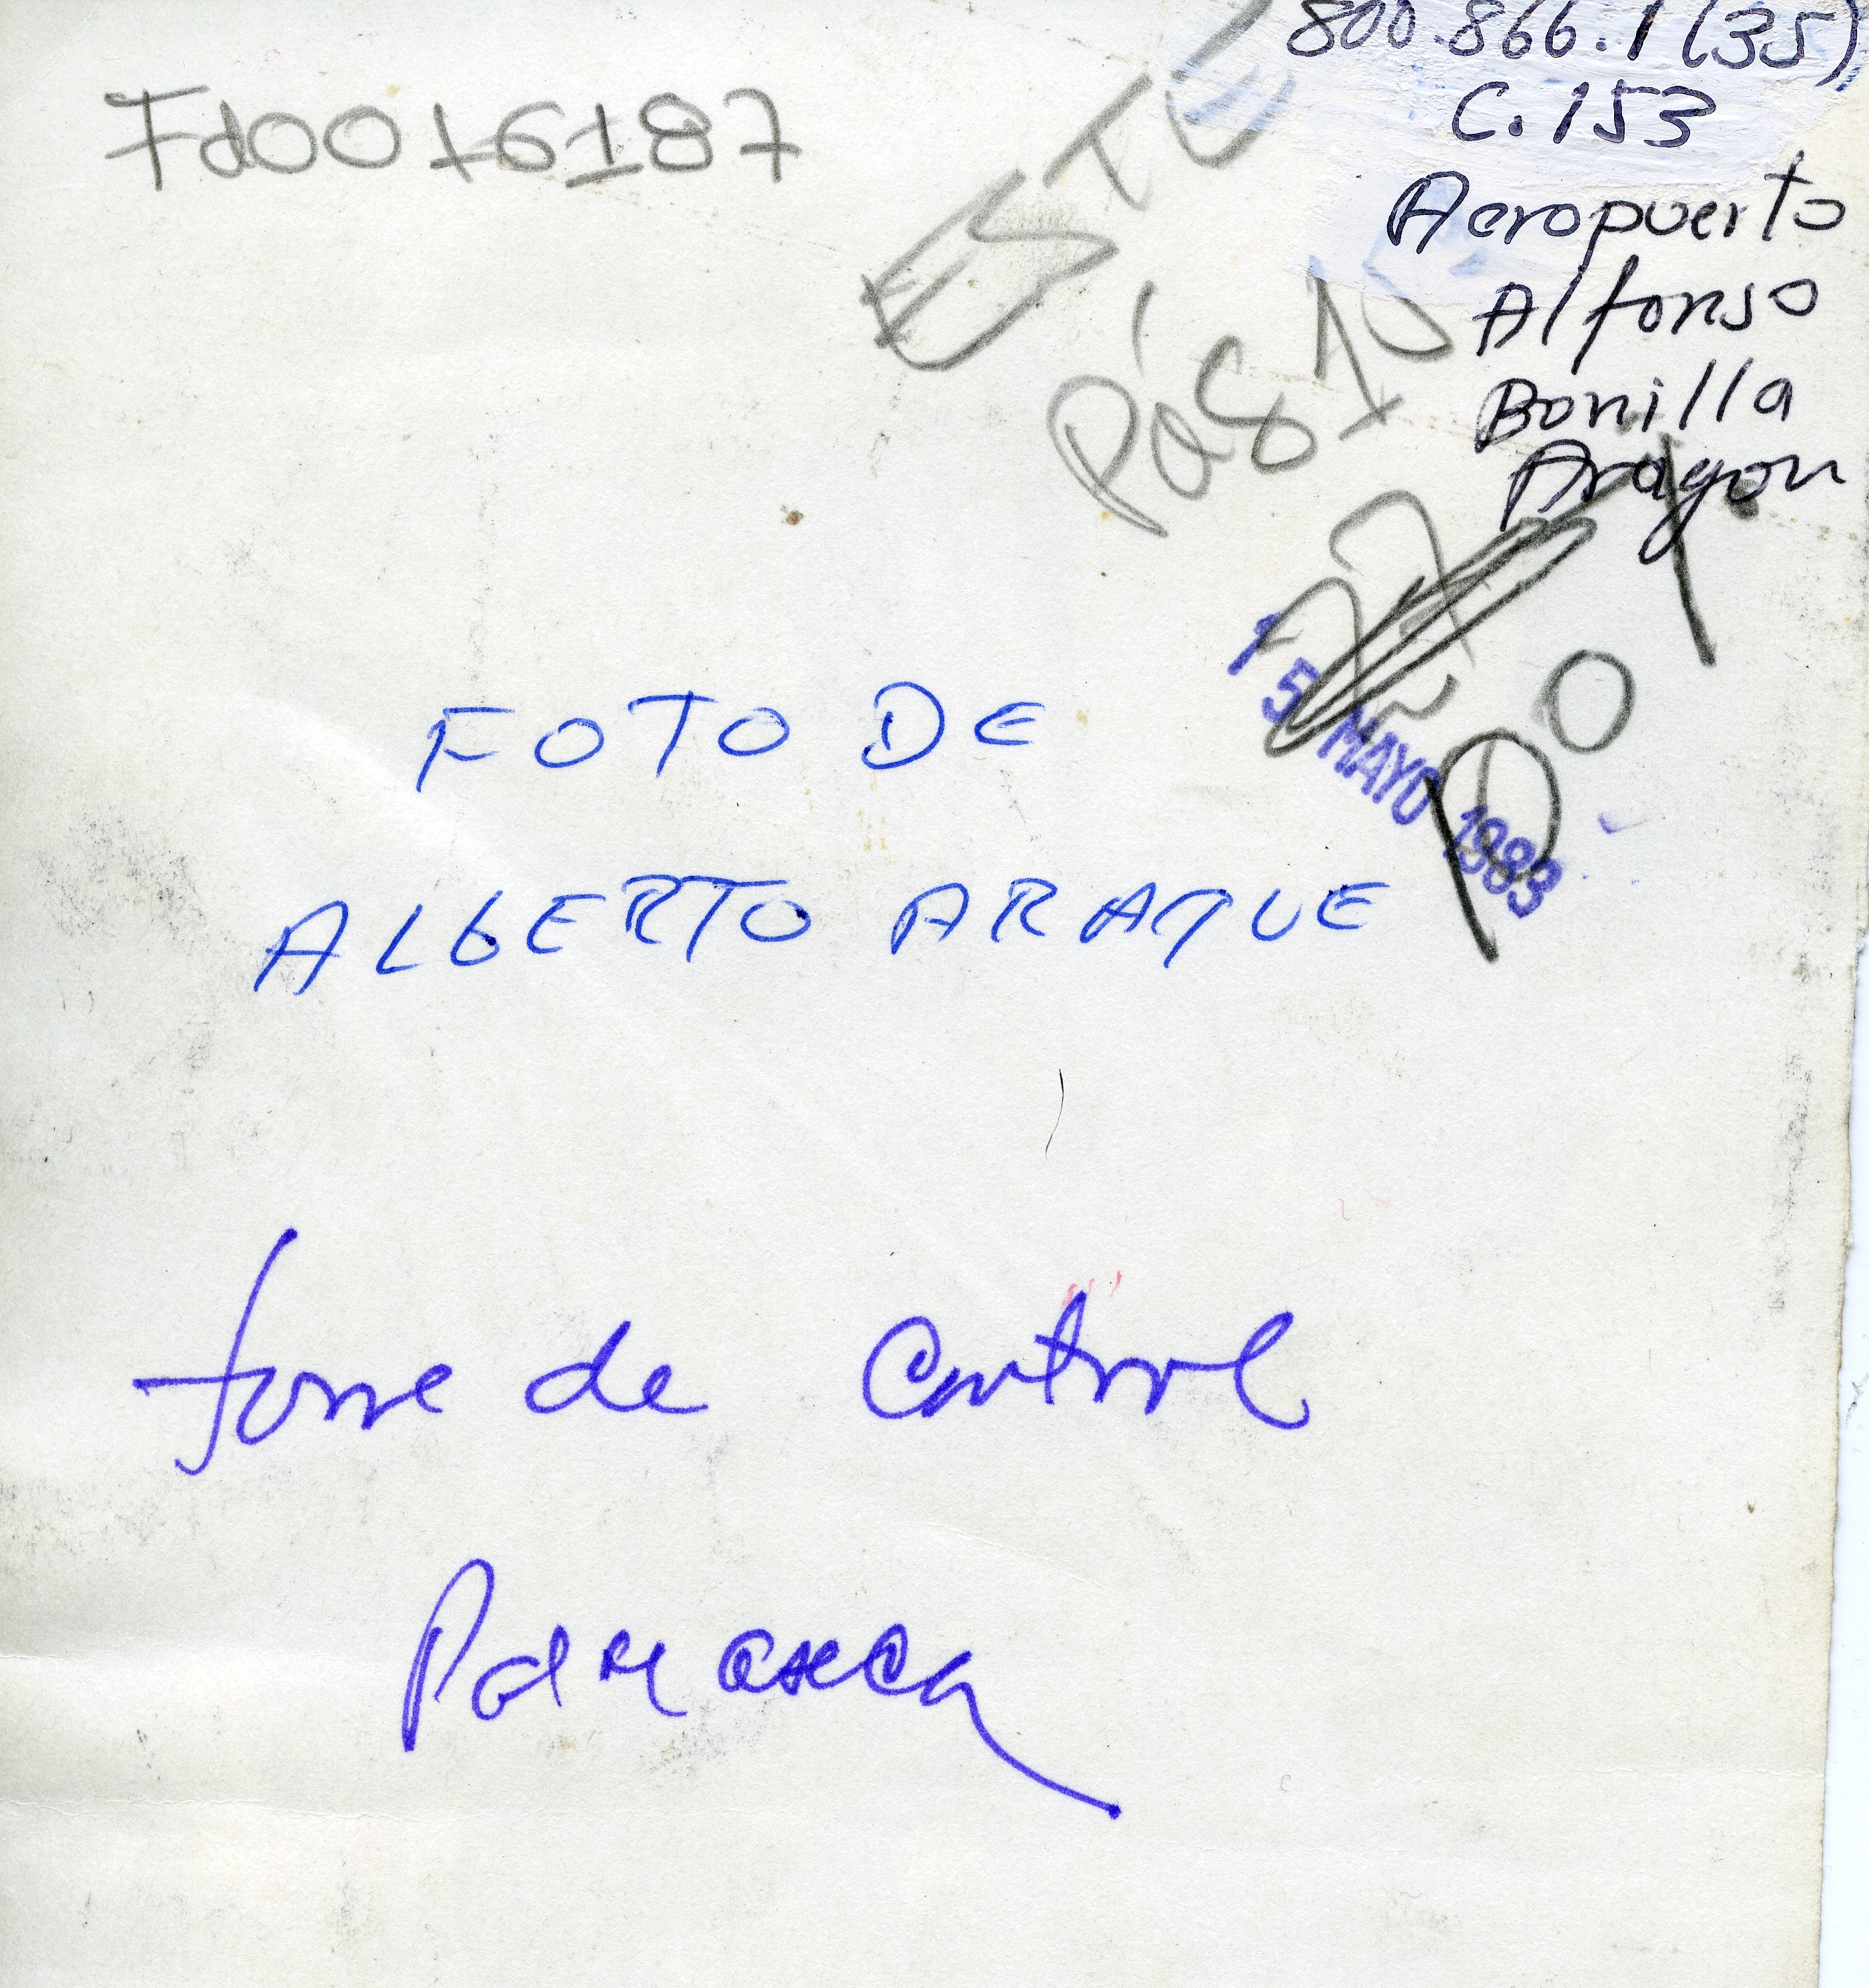 800.866.1 (35)
C.153
Aeropuerto
Alfonso
Bonilla
Aragon
Fd0016187
ESTE
Pág 10
15 MAYO 1983
FOTO DE
ALBERTO ARAQUE
Torre de Control
Palmaseca